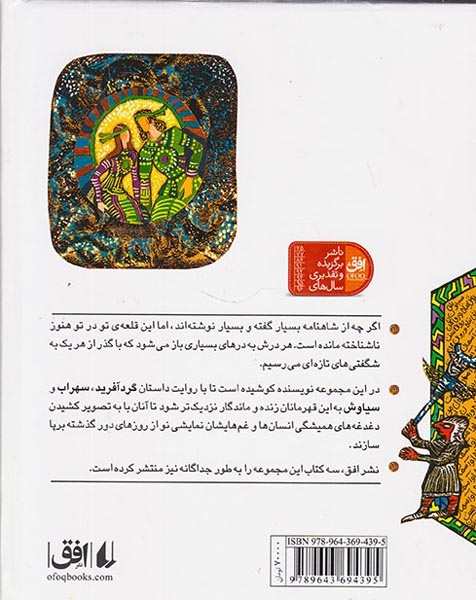 ناشر
برگزیده
و تقدیری
سال‌های
افق
OFOQ
اگر چه از شاهنامه بسیار گفته و بسیار نوشته‌اند، اما این قلعه‌ی تو در تو هنوز
ناشناخته مانده است. هر درش به درهای بسیاری باز می‌شود که با گذر از هر یک به
شگفتی‌های تازه‌ای می‌رسیم.
در این مجموعه نویسنده کوشیده است تا با روایت داستان گردآفرید، سهراب و
سیاوش به این قهرمانان زنده و ماندگار نزدیک‌تر شود تا آنان با به تصویر کشیدن
دغدغه‌های همیشگی انسان‌ها و غم‌هایشان نمایشی نو از روزهای دور گذشته برپا
سازند.
نشر افق، سه کتاب این مجموعه را به طور جداگانه نیز منتشر کرده است.
نشر افق
ofoqbooks.com
۷۰۰۰۰ تومان
ISBN 978-964-369-439-5
9789643694395